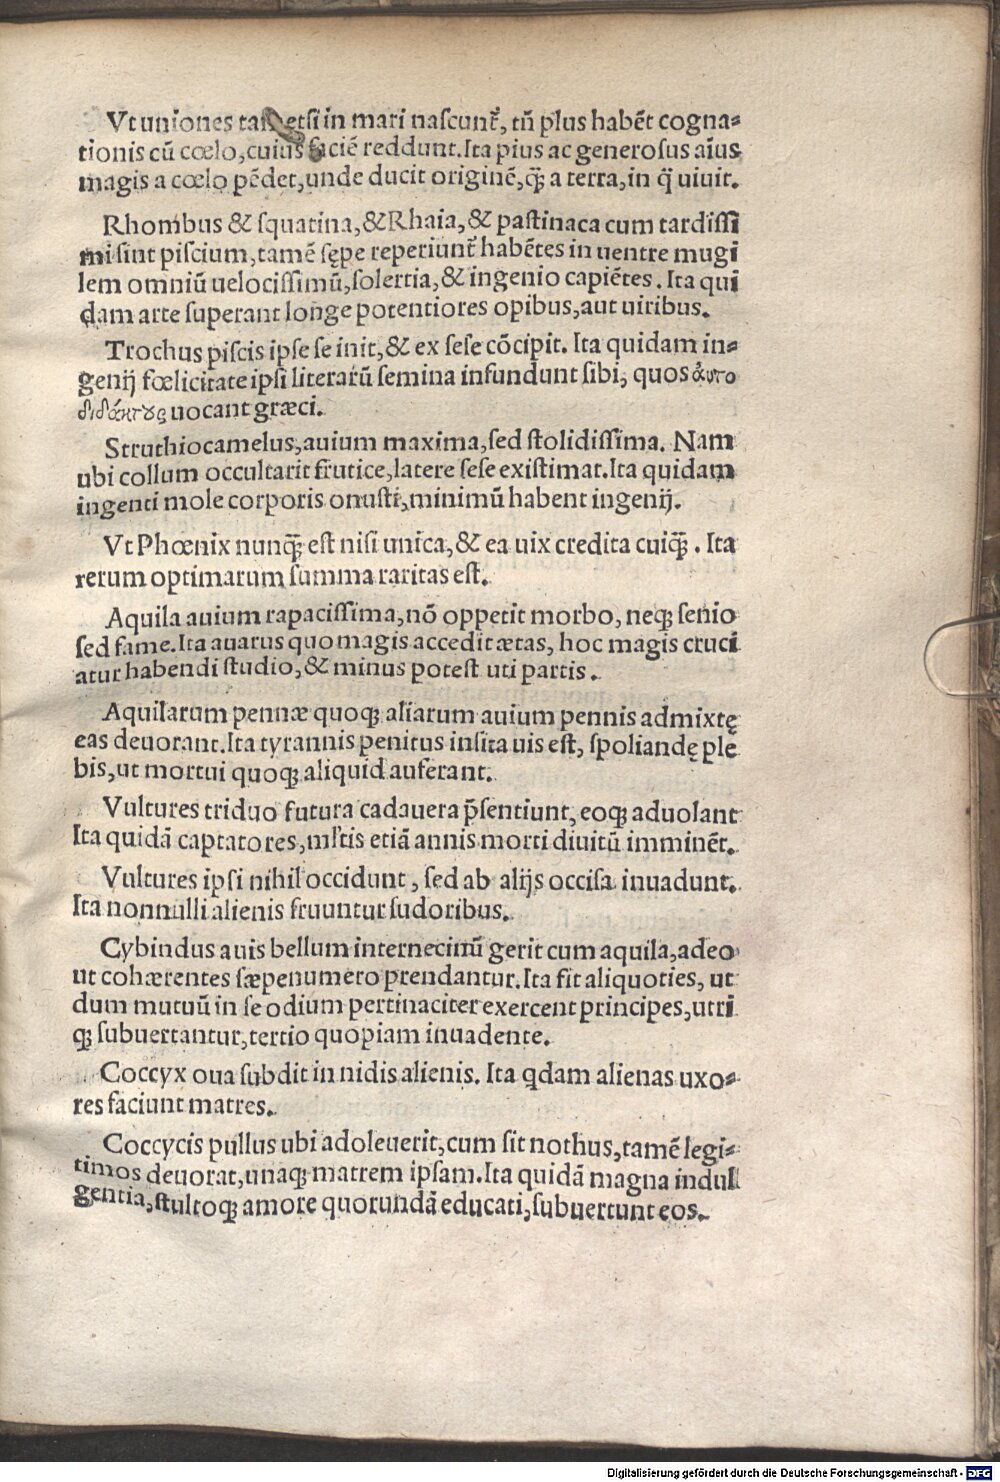 Vt uniones tametsi in mari nascunt᷑, tñ plus habẽt cogna⸗
tionis cũ cœlo, cuius faciẽ reddunt. Ita pius ac generosus aĩus
magis a cœlo pẽdet, unde ducit originẽ, q̃ȝ a terra, in q̃ uiuit.
Rhombus & squatina, & Rhaia, & pastinaca cum tardissi
mi sint piscium, tamẽ sępe reperiunt᷑ habẽtes in uentre mugi
lem omniũ uelocissimũ, solertia, & ingenio capiẽtes. Ita qui
dam arte superant longe potentiores opibus, aut uiribus.
Trochus piscis ipse se init, & ex sese cõcipit. Ita quidam in⸗
genij fœlicitate ipsi literarũ semina infundunt sibi, quos ἀυτο
διδάκτους uocant græci.
Struthiocamelus, auium maxima, sed stolidissima. Nam
ubi collum occultarit frutice, latere sese existimat. Ita quidam
ingenti mole corporis onusti, minimũ habent ingenij.
Vt Phœnix nunq̃ȝ est nisi unica, & ea uix credita cuiq̃ȝ. Ita
rerum optimarum summa raritas est.
Aquila auium rapacissima, nõ oppetit morbo, neqȝ senio
sed fame. Ita auarus quo magis accedit ætas, hoc magis cruci
atur habendi studio, & minus potest uti partis.
Aquilarum pennæ quoqȝ aliarum auium pennis admixtę
eas deuorant. Ita tyrannis penitus insita uis est, spoliandę ple
bis, ut mortui quoqȝ aliquid auferant.
Vultures triduo futura cadauera p̃sentiunt, eoqȝ aduolant
Ita quidã captatores, ml̃tis etiã annis morti diuitũ imminẽt.
Vultures ipsi nihil occidunt, sed ab alijs occisa inuadunt.
Ita nonnulli alienis fruuntur sudoribus.
Cybindus auis bellum internecinũ gerit cum aquila, adeo
ut cohærentes sæpenumero prendantur. Ita fit aliquoties, ut
dum mutuũ in se odium pertinaciter exercent principes, utri
qȝ subuertantur, tertio quopiam inuadente.
Coccyx oua subdit in nidis alienis. Ita qdam alienas uxo⸗
res faciunt matres.
Coccycis pullus ubi adoleuerit, cum sit nothus, tamẽ legi⸗
timos deuorat, unaqȝ matrem ipsam. Ita quidã magna indul
gentia, stultoqȝ amore quorundã educati, subuertunt eos.
Digitalisierung gefördert durch die Deutsche Forschungsgemeinschaft - DFG